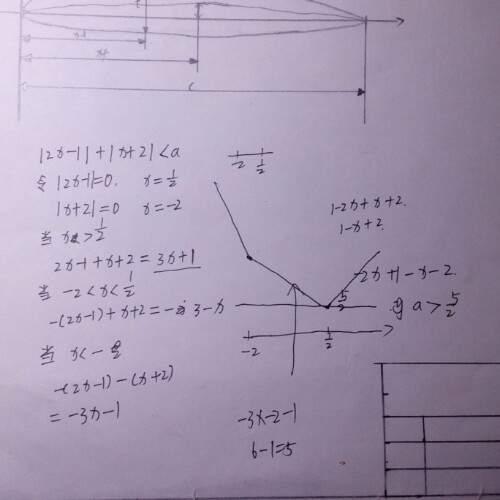 |2x-1|+|x+2|<a
令 |2x-1|=0. x=1/2
|x+2|=0 x=-2
当 x>1/2
2x-1+x+2=3x+1
当 -2<x<1/2
-(2x-1)+x+2= 3-x
当 x<-2
-(2x-1)-(x+2)
=-3x-1
-2 1/2
1-2x+x+2.
1-x+2.
-2x+1-x-2.
5/2
a>5/2
-2 1/2
-3x-2-1
6-1=5